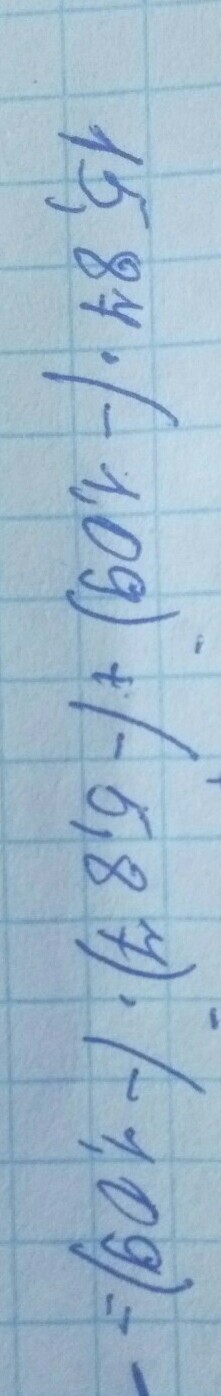 15,87 · (- 1,09) + (- 5,87) · (- 1,09) =